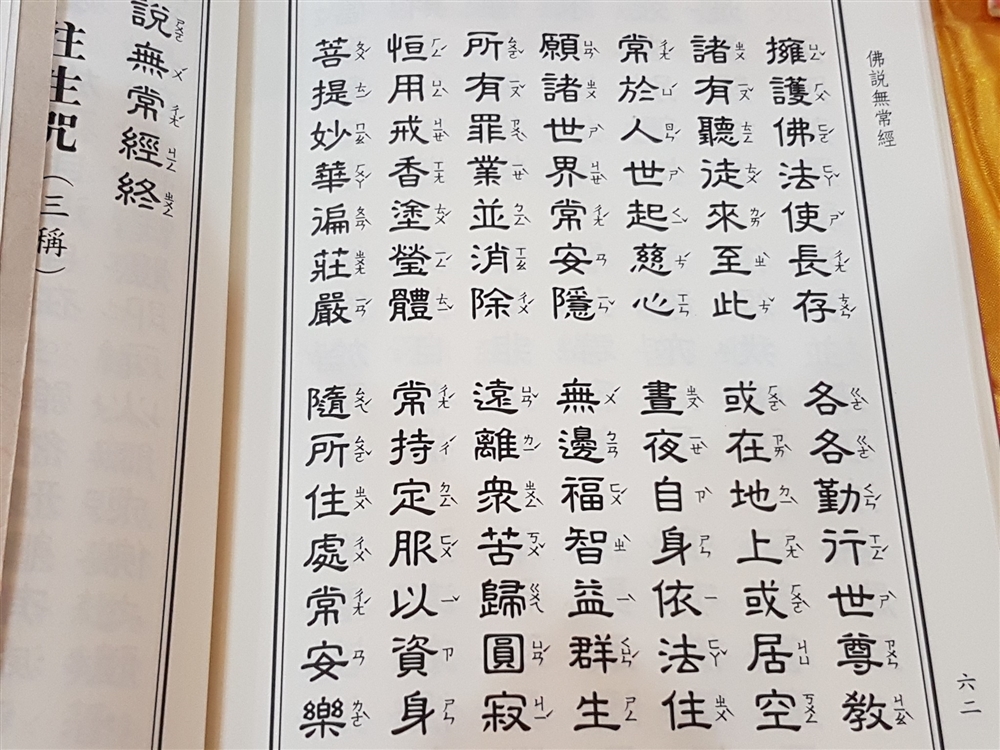 佛說無常經
六二
擁護佛法使長存　各各勤行世尊教
諸有聽徒來至此　或在地上或居空
常於人世起慈心　晝夜自身依法住
願諸世界常安隱　無邊福智益群生
所有罪業並消除　遠離衆苦歸圓寂
恒用戒香塗瑩體　常持定服以資身
菩提妙華徧莊嚴　隨所住處常安樂
說無常經終
往生咒（三稱）